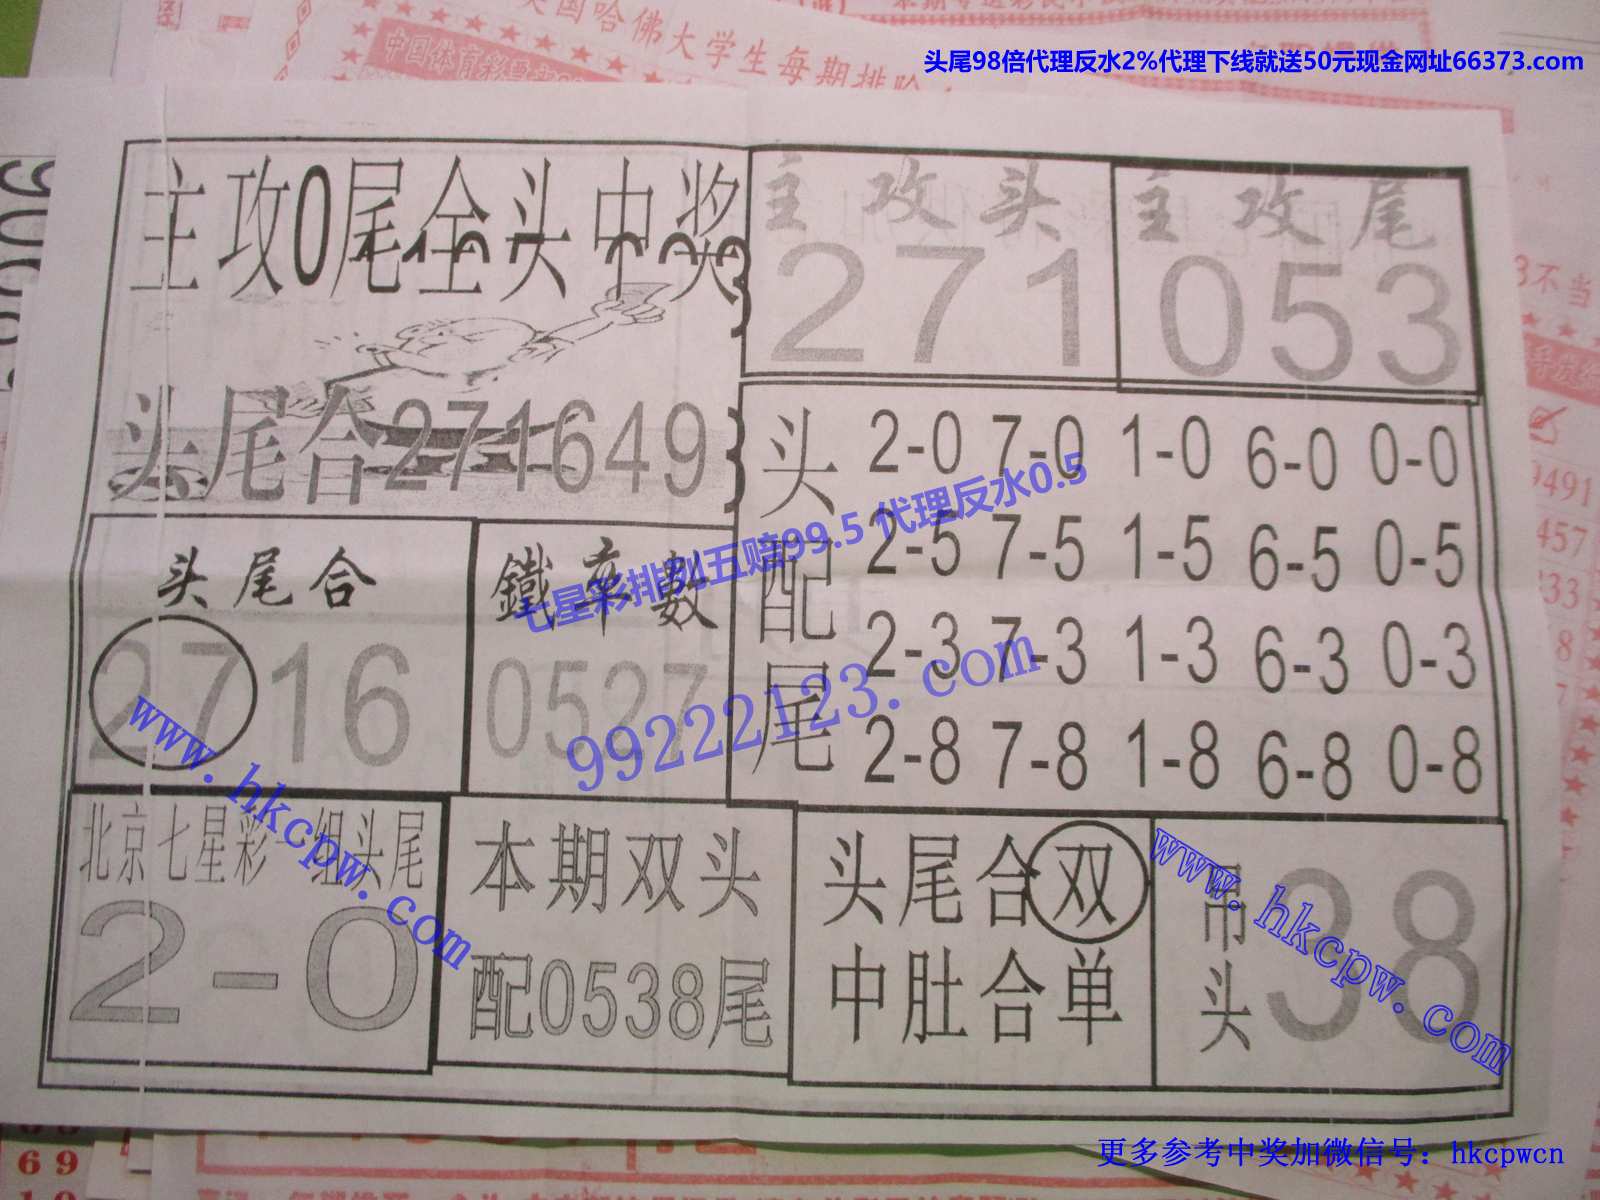 美国哈佛大学生每期排
头尾98倍代理反水2%代理下线就送50元现金网址66373.com
主攻0尾全头中奖
主攻头
271
主攻尾
053
头尾合271649
头配尾
2-0 7-0 1-0 6-0 0-0
2-5 7-5 1-5 6-5 0-5
2-3 7-3 1-3 6-3 0-3
2-8 7-8 1-8 6-8 0-8
七星彩排列五赔99.5 代理反水0.5
99222123.com
头尾合
2716
鐵率數
0527
www.hkcpw.com
北京七星彩一组头尾
2-0
本期双头
配0538尾
头尾合双
中肚合单
吊头
38
www.hkcpw.com
不当
9491
457
更多参考中奖加微信号：hkcpwcn
69